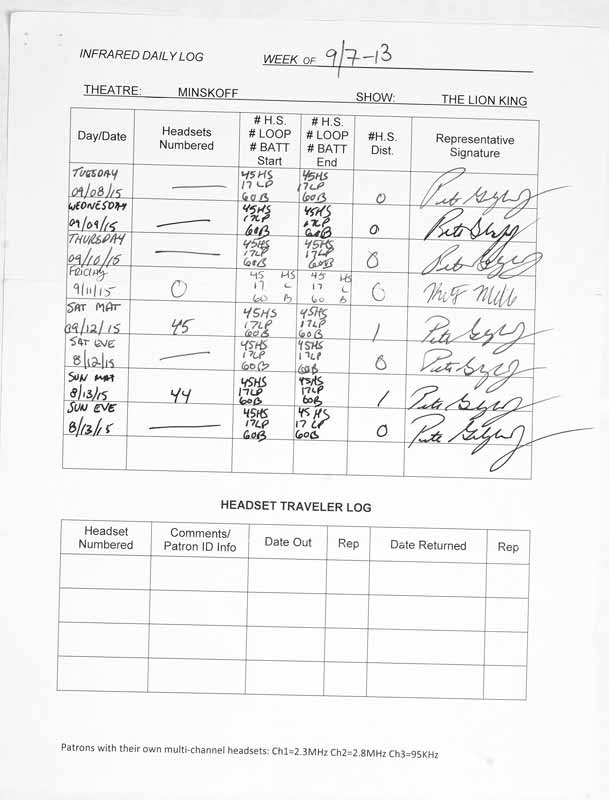 INFRARED DAILY LOG WEEK OF 9/7-13
THEATRE: MINSKOFF SHOW: THE LION KING
Day/Date
Headsets
Numbered
# H.S.
# LOOP
# BATT
Start
# H.S.
# LOOP
# BATT
End
#H.S.
Dist.
Representative
Signature
TUESDAY
09/08/15
45HS
17LP
60B
45HS
17LP
60B
0
WEDNESDAY
09/09/15
45HS
17LP
60B
45HS
17LP
60B
0
THURSDAY
09/10/15
45HS
17LP
60B
45HS
17LP
60B
0
9/11/15
0
45 HS
17 L
60 B
45 HS
17 L
60 B
0
SAT MAT
09/12/15
45
45HS
17LP
60B
45HS
17LP
60B
1
SAT EVE
8/12/15
45HS
17LP
60B
45HS
17LP
60B
0
SUN MAT
8/13/15
44
45HS
17LP
60B
45HS
17LP
60B
1
SUN EVE
8/13/15
45HS
17LP
60B
45HS
17LP
60B
0
HEADSET TRAVELER LOG
Headset
Numbered
Comments/
Patron ID Info
Date Out
Rep
Date Returned
Rep
Patrons with their own multi-channel headsets: Ch1=2.3MHz Ch2=2.8MHz Ch3=95KHz